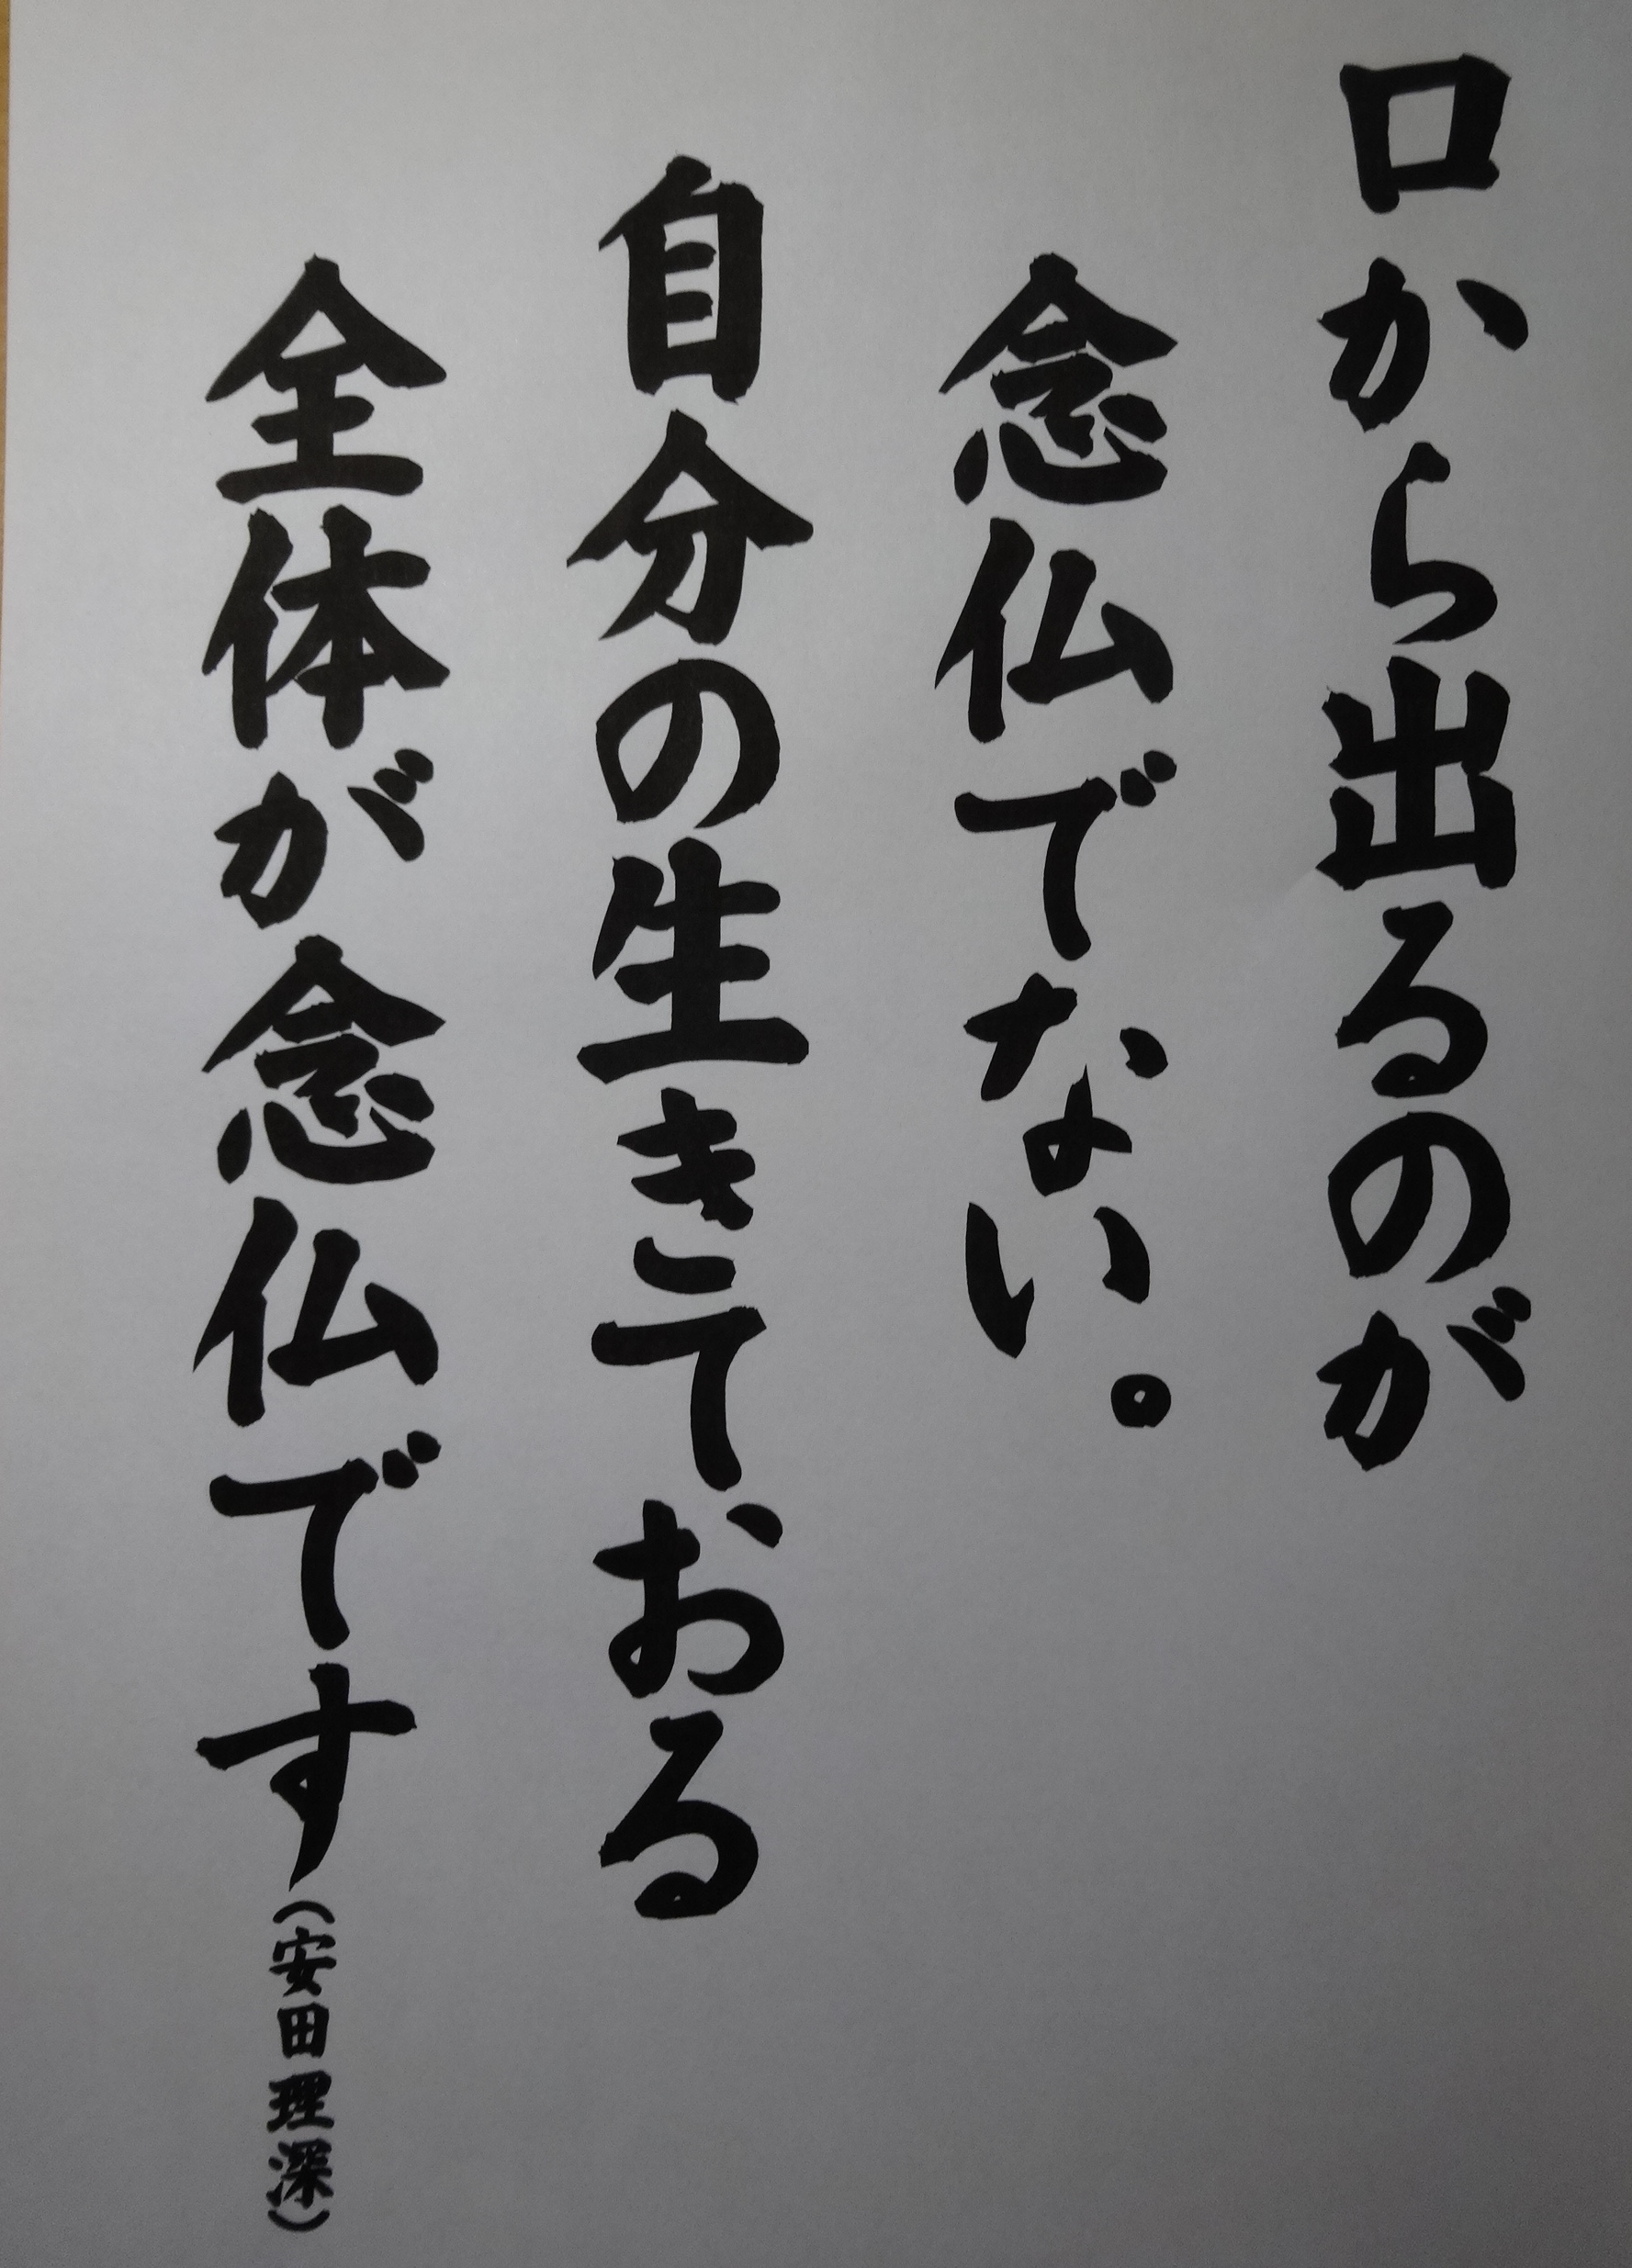 口から出るのが
念仏でない。
自分の生きておる
全体が念仏です（安田理深）